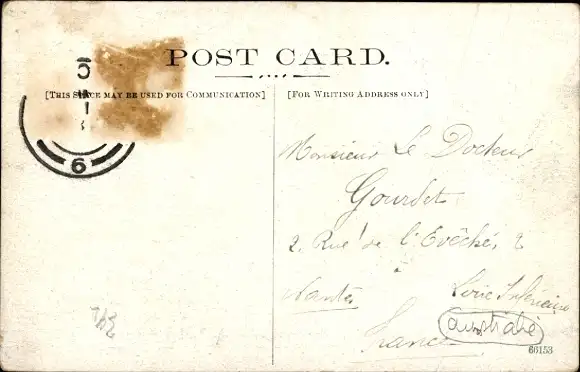 POST CARD.
[THIS SPACE MAY BE USED FOR COMMUNICATION]
[FOR WRITING ADDRESS ONLY]
Monsieur Le Docteur
Gourdet
2. Rue de l'Evêché, 2
à
Nantes Loire Inférieure
France
Australie
66153
6